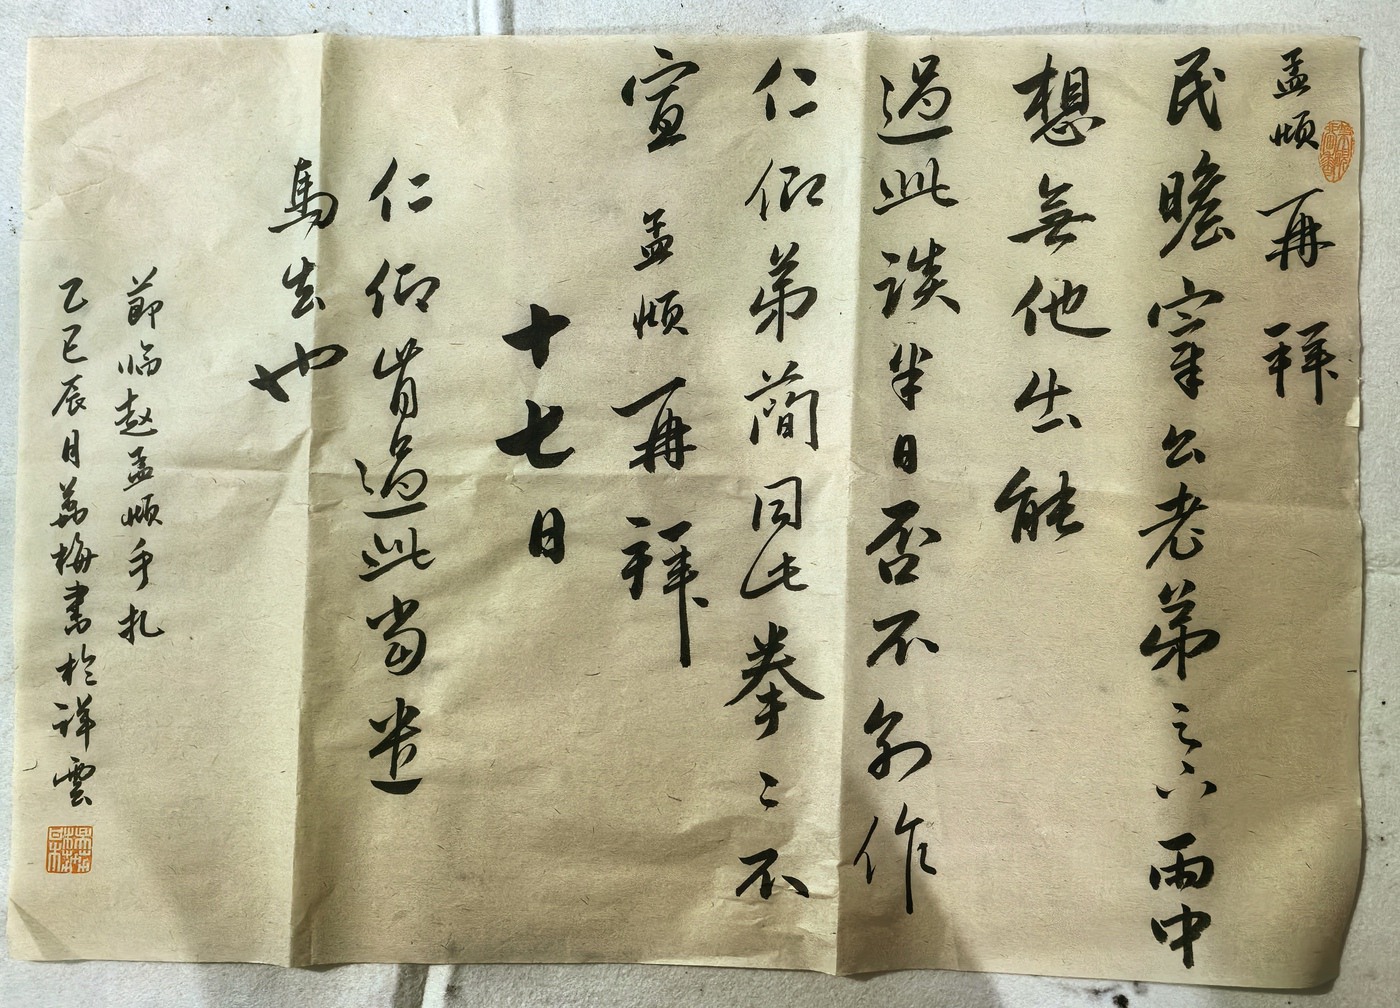 孟頫再拜
民瞻宰公老弟之下雨中
想無他出能
過此談半日否不別作
仁仰弟簡同此拳〻不
宣孟頫再拜
十七日
仁仰肯過此當遣
馬去也
節臨趙孟頫手札
乙巳辰月荔梅書於詳雲